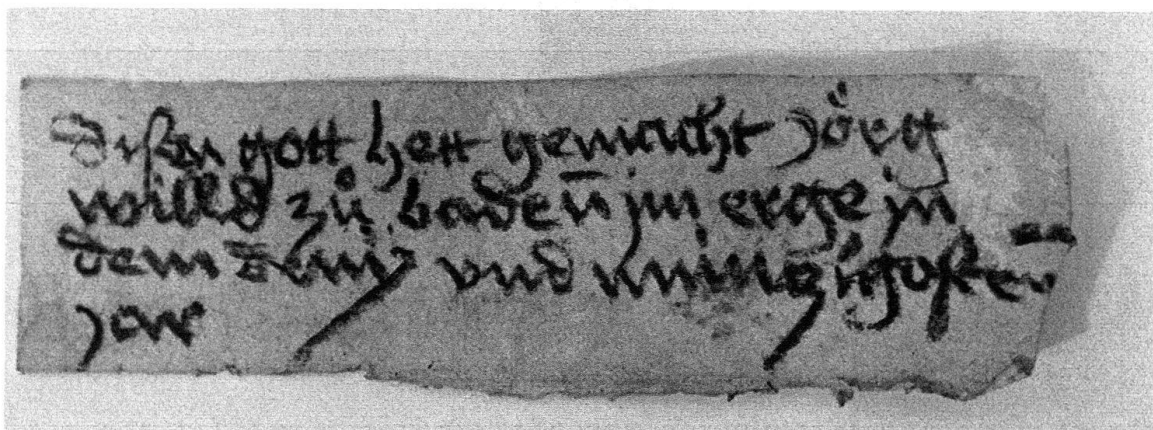 disen gott hett gemacht jörg
willd zů baden jm erge jn
dem vnd nuinzigosten
jar